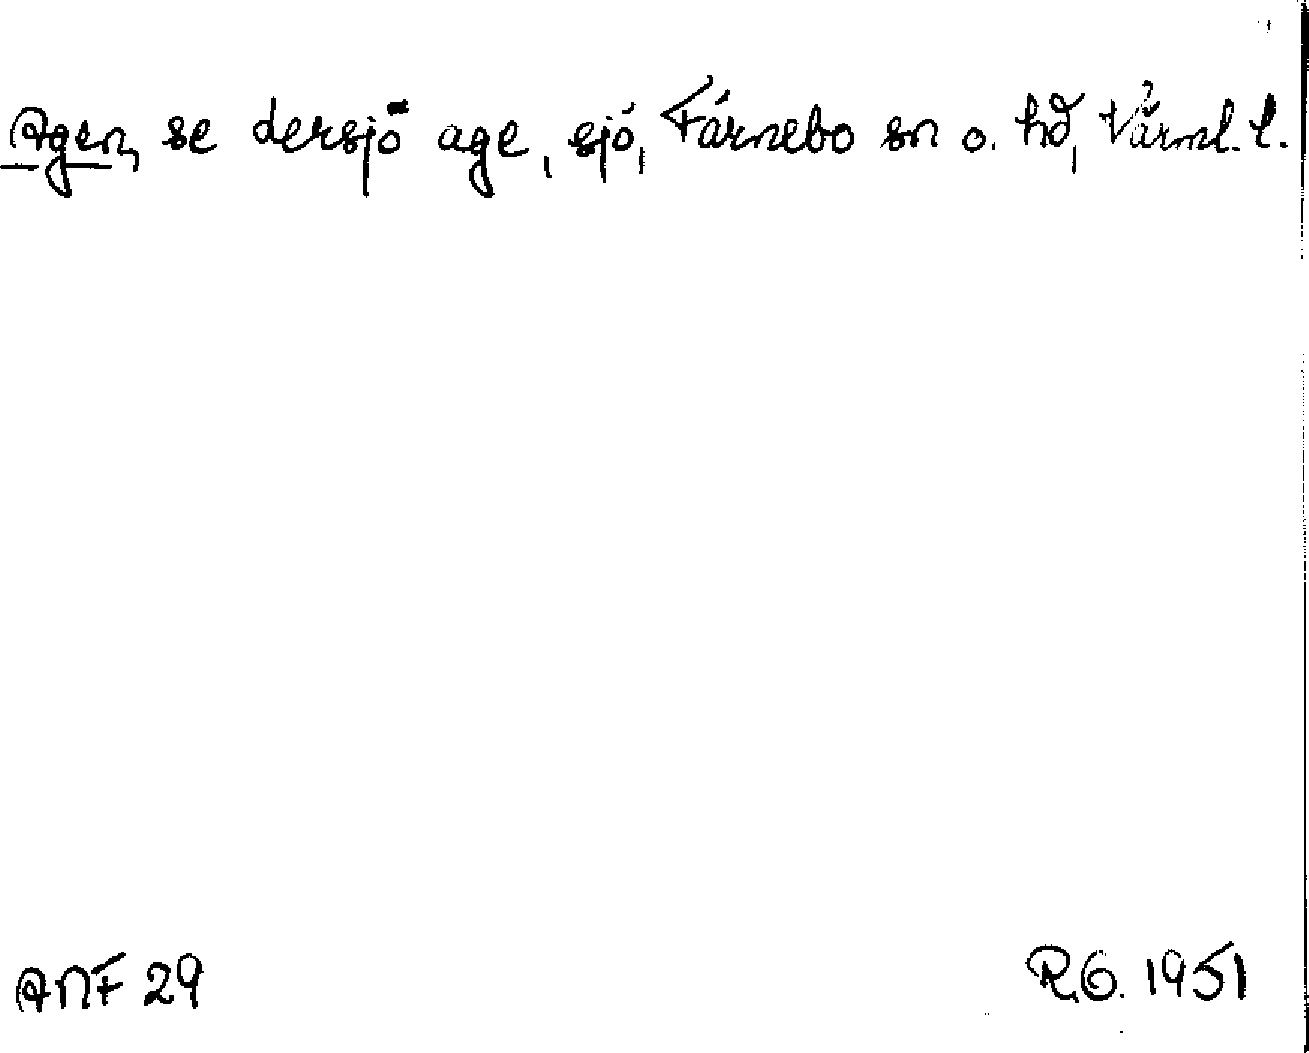 Agen, se dersjö age, sjö, Färnebo sn o. hd, Värml. l.
ANF 29
R.G. 1951